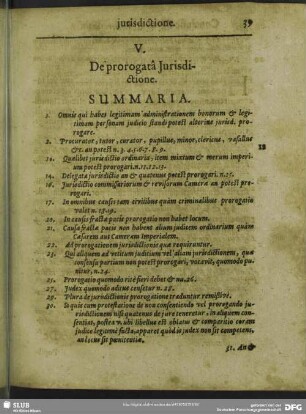 jurisdictione. 39
V.
De prorogatâ Jurisdi-
ctione.
SUMMARIA.
1. Omnis qui habet legitimam administrationem bonorum & legi-
timam personam judicio standi potest alterius jurisd. pro-
rogare.
2. Procurator, tutor, curator, pupillus, minor, clericus, vasallus
&c. an potest n. 3. 4. 5. 6. 7. 8. 9.
10. Quælibet jurisdictio ordinaria, item mixtum & merum imperi-
um potest prorogari. n. 11. 12. 13.
14. Delegata jurisdictio an & quatenus potest prorogari. n. 15.
16. Jurisdictio commissariorum & revisorum Cameræ an potest pro-
rogari.
17. In omnibus causis tam civilibus quàm criminalibus prorogatio
valet n. 18. 19.
20. In causa fractæ pacis prorogatio non habet locum.
21. Causa fractæ pacis non habent alium judicem ordinarium quàm
Cæsarem aut Cameram Imperialem.
22. Ad prorogationem jurisdictionis quæ requirantur.
23. Qui aliquem ad vetitum judicium vel alium jurisdictionem, quæ
consensu partium non potest prorogari, vocavit, quomodo pu-
nitur, n. 24.
25. Prorogatio quomodo ritè fieri debet & nu. 26.
27. Judex quomodo aditus censetur n. 28.
29. Plura de jurisdictionis prorogatione traduntur remissivè.
30. Is qui cum protestatione de non consentiendo vel prorogando ju-
risdictionem nisi quatenus de jure teneretur, in aliquem con-
sentiit, postea v. ubi libellus est oblatus & comparitio coram
judice legitimè facta, apparet quòd is judex non sit competens,
an locus sit pœnitentiæ.
31. An &